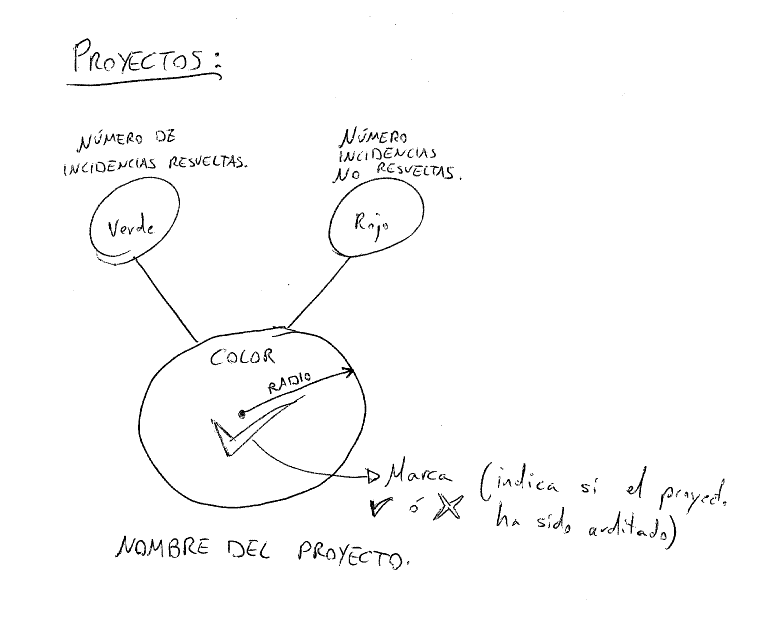 PROYECTOS:
NÚMERO DE
INCIDENCIAS RESUELTAS.
NÚMERO
INCIDENCIAS
NO RESUELTAS.
Verde
Rojo
COLOR
RADIO
Marca (indica si el proyecto
✔ ó ✗ ha sido auditado)
NOMBRE DEL PROYECTO.